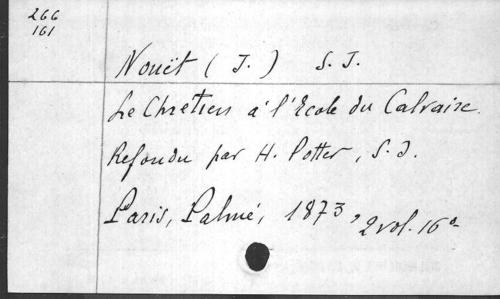 266
161
Nouët (J.) S.J.
Le Chrétien à l'Ecole du Calvaire.
Refondu par H. Potter, S.J.
Paris, Palmé, 1873, 2 vol. 16°